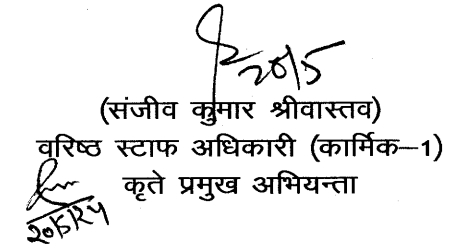 20/5
(संजीव कुमार श्रीवास्तव)
वरिष्ठ स्टाफ अधिकारी (कार्मिक–1)
कृते प्रमुख अभियन्ता
२०/५/२५